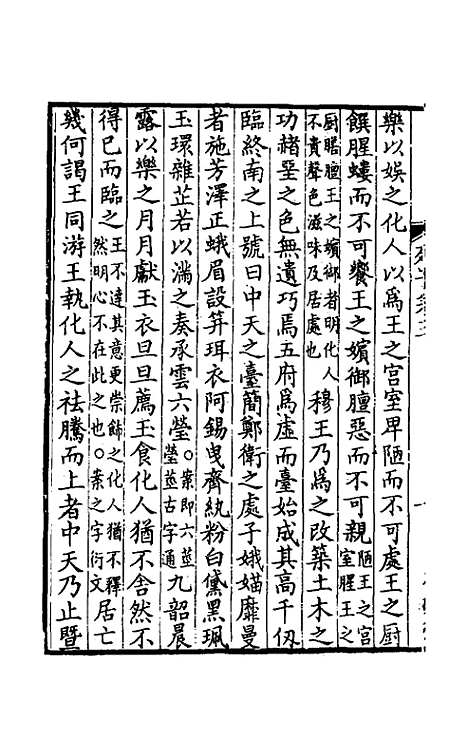 樂以娛之化人以爲王之宫室卑陋而不可處王之厨
饌腥螻而不可饗王之嬪御膻惡而不可親陋王之宫室腥王之
厨膳膻王之嬪御者明化人不貴聲色滋味及居處也穆王乃爲之改築土木之
功赭堊之色無遺巧焉五府爲虛而臺始成其高千仭
臨終南之上號曰中天之臺簡鄭衛之處子娥媌靡曼
者施芳澤正蛾眉設笄珥衣阿錫曳齊紈粉白黛黑珮
玉環雜芷若以滿之奏承雲六瑩○案即六莖瑩莖古字通九韶晨
露以樂之月月獻玉衣旦旦薦玉食化人猶不舍然不
得已而臨之王不達其意更崇飾之化人猶不釋然明心不在此之也○案之字衍文居亡
幾何謁王同游王執化人之袪騰而上者中天乃止暨